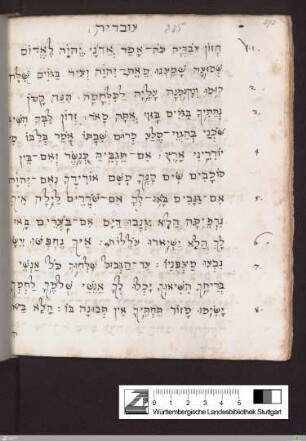 עובדיה
חזון עבדיה כה אמר אדני יהוה לאדום
שמועה שמענו מאת יהוה וציר בגוים שלח
קומו ונקומה עליה למלחמה הנה קטן
נתתיך בגוים בזוי אתה מאד זדון לבך השיא
שכני בחגוי סלע מרום שבתו אמר בלבו מי
יורידני ארץ אם תגביה כנשר ואם בין
כוכבים שים קנך משם אורידך נאם יהוה
אם גנבים באו לך אם שודדי לילה איך
נדמיתה הלא יגנבו דים אם בצרים באו
לך הלא ישאירו עללות איך נחפשו עשו
נבעו מצפניו עד הגבול שלחוך כל אנשי
בריתך השיאוך יכלו לך אנשי שלמך לחמך
ישימו מזור תחתיך אין תבונה בו הלא
0 1 2 3 4 5 6 7 8 9
Württembergische Landesbibliothek Stuttgart